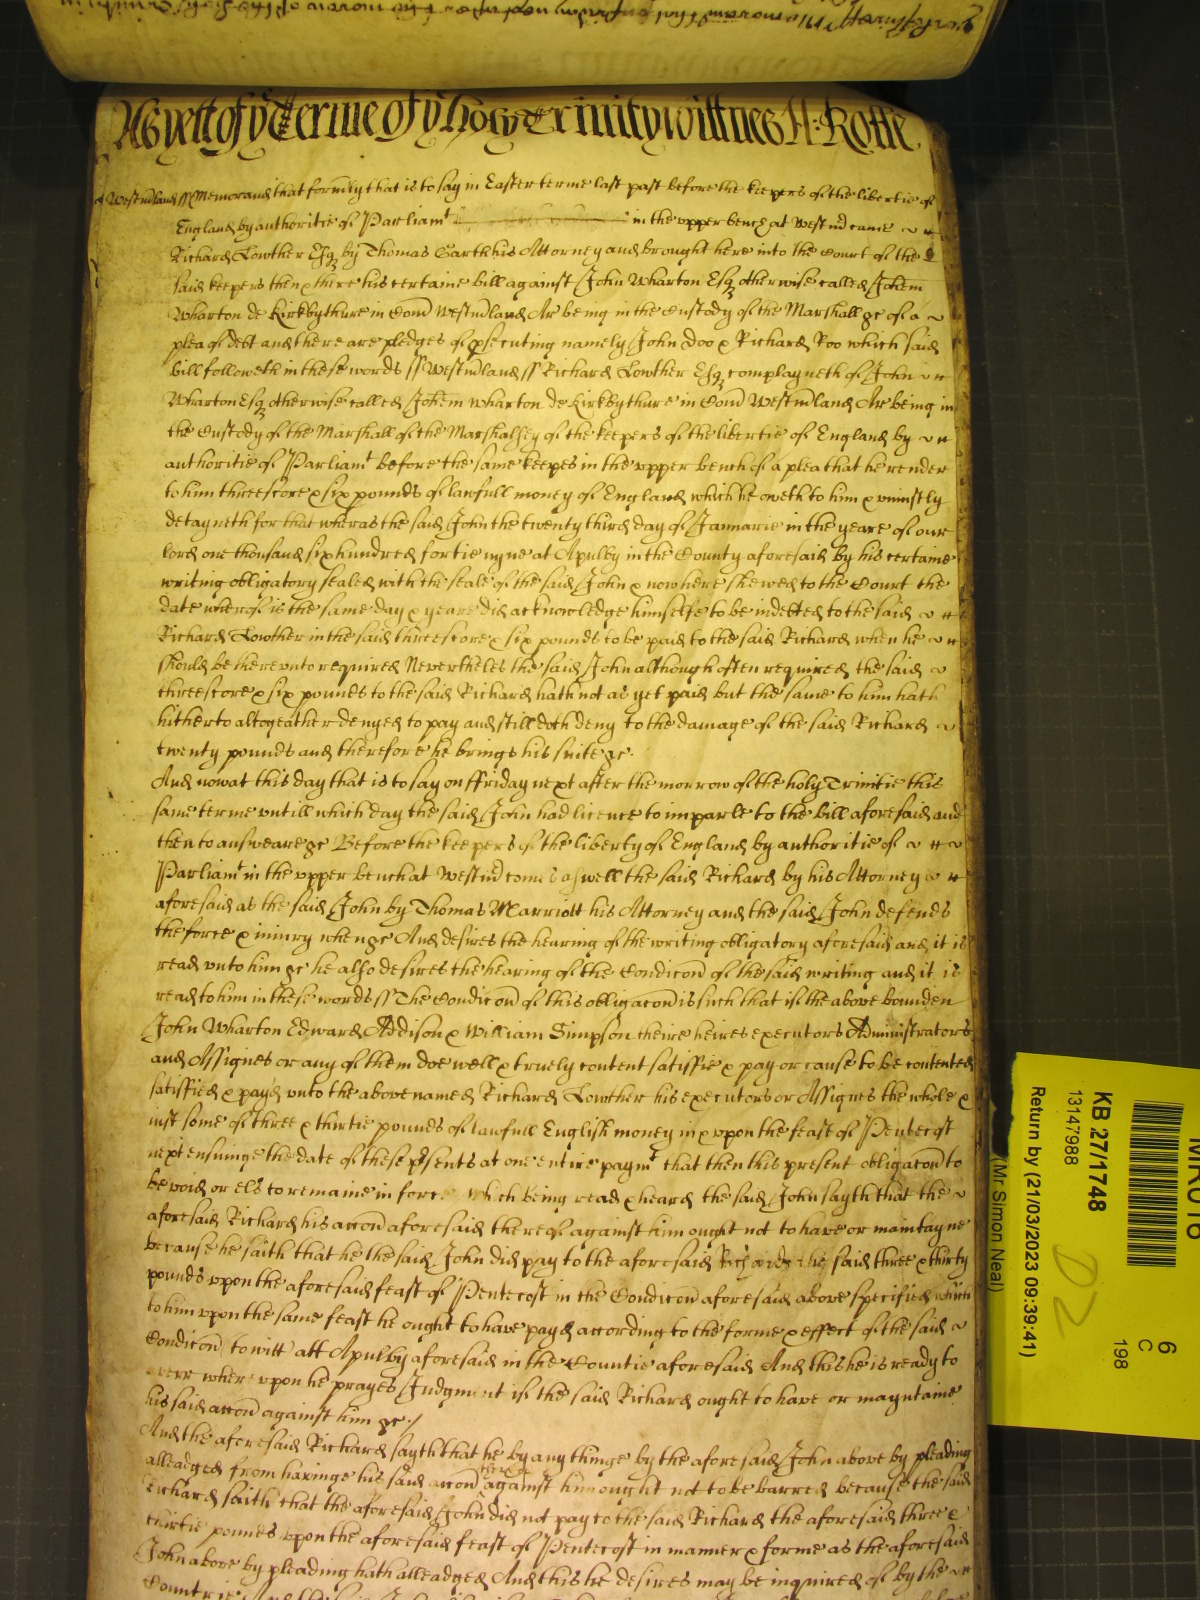 As yett of ye Terme of ye holy Trinity wittnes H: Rolle.
Westmland ss Memorand that formly that is to say in Easter terme last past before the keepers of the libertie of
England by authoritie of Parliamt in the vpper bench at Westmr came
Richard Lowther Esqz by Thomas Garth his Attorney and brought here into the Court of the
said keepers then & there his certaine bill against John Wharton Esqz otherwise called Johem
Wharton de Kirkbythure in Com Westmland Ar being in the Custody of the Marshall &c of a
plea of debt and there are pledges of psecuting namely John Doo & Richard Roo which said
bill followeth in these words ss Westmland ss Richard Lowther Esqz complayneth of John
Wharton Esqz otherwise called Johem Wharton de Kirkbythure in Com Westmland Ar being in
the Custody of the Marshall of the Marshalsey of the keepers of the libertie of England by
authoritie of Parliamt before the same keepes in the vpper bench of a plea that he render
to him threescore & six pounds of lawfull money of England which he oweth to him & vniustly
detayneth for that wheras the said John the twenty third day of Januarie in the yeare of our
lord one thousand six hundred fortie nyne at Apulby in the County aforesaid by his certaine
writing obligatory sealed with the seale of the said John & now here shewed to the Court the
date wherof is the same day & yeare did acknowledge himselfe to be indebted to the said
Richard Lowther in the said threescore & six pounds to be paid to the said Richard when he
should be therevnto required Neverthelės the said John although often required the said
threescore & six pounds to the said Richard hath not as yet paid but the same to him hath
hitherto altogeather denyed to pay and still doth deny to the damage of the said Richard
twenty pounds and therefore he brings his suite &c.
And now at this day that is to say on ffriday next after the morrow of the holy Trinitie this
same terme vntill which day the said John had licence to imparle to the bill aforesaid and
then to answeare &c Before the keepers of the liberty of England by authoritie of
Parliamt in the vpper bench at Westmr comes aswell the said Richard by his Attorney
aforesaid as the said John by Thomas Marriott his Attorney and the said John defends
the force & iniury when &c And desires the hearing of the writing obligatory aforesaid and it is
read vnto him &c he also desires the hearing of the Condicon of the said writing and it is
read to him in these words ss The Condicon of this obligacon is such that if the above bounden
John Wharton Edward Addison & William Simpson theire heires executors Administrators
and Assignes or any of them doe well & truely content satisfie & pay or cause to be contented
satisfied & payd vnto the above named Richard Lowther his executors or Assignes the whole &
iust some of three & thirtie pounds of lawfull English money in & vpon the feast of Pentecost
next ensuinge the date of these psents at one entire paymt that then this present obligacon to
be void or els to remaine in force which being read & heard the said John sayth that the
aforesaid Richard his accon aforesaid thereof against him ought not to have or maintayne
because he saith that he the said John did pay to the aforesaid Richard the said three & thirty
pounds vpon the aforesaid feast of Pentecost in the Condicon aforesaid above specified which
to him vpon the same feast he ought to have payd according to the forme & effect of the said
Condicon to witt att Apulby aforesaid in the Countie aforesaid And this he is ready to
averr where vpon he prayes Judgment if the said Richard ought to have or mayntaine
his said accon against him &c /
And the aforesaid Richard sayth that he by any thinge by the aforesaid John above by pleading
alleadged from havinge his said accon thereof against him ought not to be barred because the said
Richard saith that the aforesaid John did not pay to the said Richard the aforesaid three &
thirtie pounds vpon the aforesaid feast of Pentecost in manner & forme as the aforesaid
John above by pleading hath alleadged And this he desires may be inquired of by the
Countrie
MR016
6
C
198
KB 27/1748
13147988
D2
Return by (21/03/2023 09:39:41)
(Mr Simon Neal)